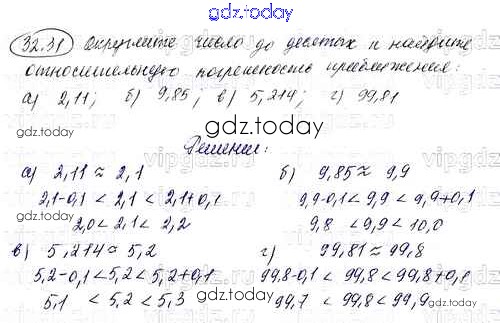 gdz.today
32.31 Округлите число до десятых и найдите
относительную погрешность приближения:
а) 2,11; б) 9,85; в) 5,214; г) 99,81
gdz.today
Решение:
а) 2,11 ≈ 2,1 б) 9,85 ≈ 9,9
2,1-0,1 < 2,1 < 2,1+0,1 9,9-0,1 < 9,9 < 9,9+0,1
2,0 < 2,1 < 2,2 9,8 < 9,9 < 10,0
в) 5,214 ≈ 5,2 г) 99,81 ≈ 99,8
5,2-0,1 < 5,2 < 5,2+0,1 99,8-0,1 < 99,8 < 99,8+0,1
5,1 < 5,2 < 5,3 99,7 < 99,8 < 99,9
gdz.today